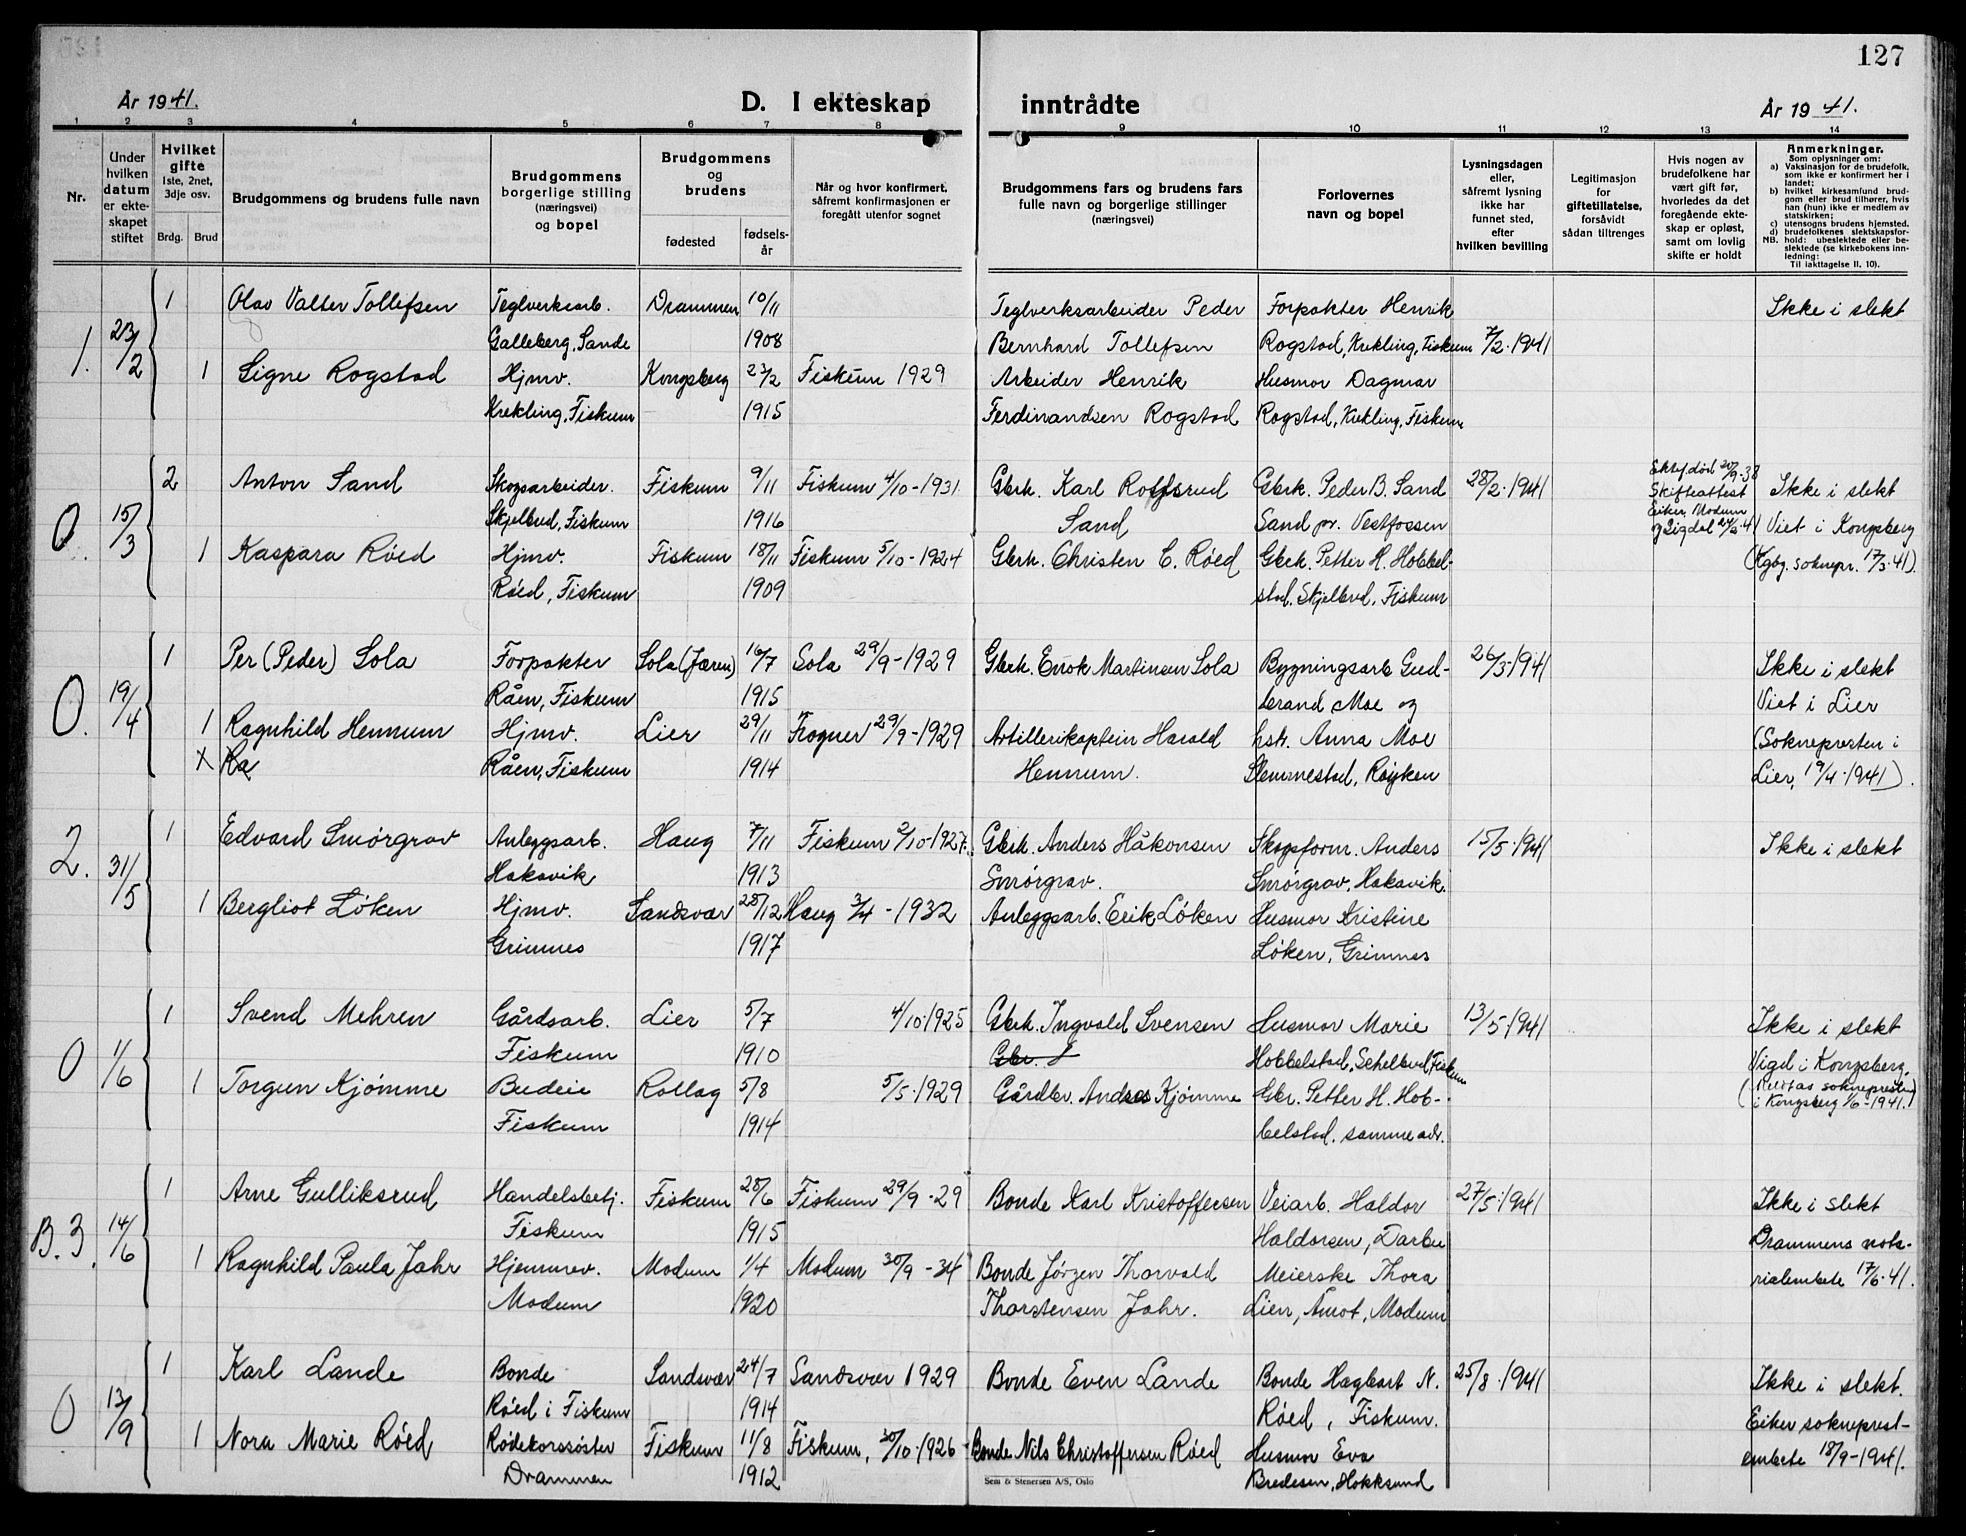 127
År 1941.
D. I ekteskap inntrådte
År 1941.
1 2 3 4 5 6 7 8 9 10 11 12 13 14
Nr.
Under hvilken datum er ekte-skapet stiftet
Hvilket gifte
1ste, 2net, 3dje osv.
Brdg. Brud
Brudgommens og brudens fulle navn
Brudgommens borgerlige stilling (næringsvei) og bopel
Brudgommens og brudens
fødested
fødsels-år
Når og hvor konfirmert, såfremt konfirmasjonen er foregått utenfor sognet
Brudgommens fars og brudens fars fulle navn og borgerlige stillinger (næringsvei)
Forlovernes navn og bopel
Lysningsdagen eller, såfremt lysning ikke har funnet sted, efter hvilken bevilling
Legitimasjon for giftetillatelse, forsåvidt sådan tiltrenges
Hvis nogen av brudefolkene har vært gift før, hvorledes da det foregående ekte-skap er opløst, samt om lovlig skifte er holdt
Anmerkninger.
Som oplysninger om:
a) Vaksinasjon for de brudefolk, som ikke er konfirmert her i landet;
b) hvilket kirkesamfund brud-gom eller brud tilhører, hvis han (hun) ikke er medlem av statskirken;
c) utensogns brudens hjemsted.
d) brudefolkenes slektskapsfor-
NB. hold: ubeslektede eller be-slektede (se kirkebokens inn-ledning:
Til iakttagelse II, 10).
1. 23/2 1 Olav Valter Tollefsen Teglverksarb. Drammen 10/11 Teglverksarbeider Peder Forpakter Henrik Ikke i slekt
Galleberg, Sande 1908 Bernhard Tollefsen Rogstad, Krekling, Fiskum 7/2.1941
1 Signe Rogstad Hjmv. Kongsberg 23/2 Fiskum 1929 Arbeider Henrik Husmor Dagmar
Krekling, Fiskum 1915 Ferdinandsen Rogstad Rogstad, Krekling, Fiskum
0. 15/3 2 Anton Sand Skogsarbeider. Fiskum 9/11 Fiskum 4/10-1931 Gbrk. Karl Roffsrud Gbrk. Peder B. Sand 28/2.1941 Ektef. død 20/9-38 Ikke i slekt
Skjelbred, Fiskum 1916 Sand Sand pr. Vestfossen Skifteattest Eiker, Modum og Sigdal 24/2.41 Viet i Kongsberg
1 Kaspara Röed Hjmv. Fiskum 18/11 Fiskum 5/10-1924 Gbrk. Christen C. Røed Gbrk. Petter H. Hobbel- (Kgbg. soknepr. 17/3.41).
Röed, Fiskum 1909 stad, Skjelbred, Fiskum
0. 19/4 1 Per (Peder) Sola Forpakter Sola (Jæren) 16/7 Sola 29/9-1929 Gbrk. Enok Martinsen Sola Bygningsarb Gud- 26/3.1941 Ikke i slekt
Råen, Fiskum 1915 brand Moe og Viet i Lier
1 Ragnhild Hennum Hjmv. Lier 29/11 Frogner 29/9-1929 Artillerikaptein Harald hstr. Anna Moe (Soknepresten i
X Ra Råen, Fiskum 1914 Hennum. Slemmestad, Röyken Lier, 19/4.1941).
2. 31/5 1 Edvard Smörgrav Anleggsarb. Haug 7/11 Fiskum 2/10-1927. Gbrk. Anders Håkonsen Skogsform. Anders 15/5.1941 Ikke i slekt
Hakavik 1913 Smörgrav. Smörgrav, Hakavik.
1 Bergliot Löken Hjmv. Sandsvær 28/12 Haug 3/4-1932 Anleggsarb. Erik Löken Husmor Kristine
Grimnes 1917 Löken, Grimnes
0 1/6 1 Svend Mehren Gårdsarb. Lier 5/7 4/10.1925 Gbrk. Ingvald Svensen Husmor Marie 13/5.1941 Ikke i slekt
Fiskum 1910 Gbr. S Hobbelstad, Schelbred, Fiskum Vigd i Kongsberg,
1 Torgun Kjömme Budeie Rollag 5/8 5/5.1929 Gårdbr. Andres Kjömme Gbr. Petter H. Hob- (Res. kap. soknepresten i Kongsberg 1/6-1941.)
Fiskum 1914 belstad. samme adr.
B. 3. 14/6 1 Arne Gulliksrud Handelsbetj. Fiskum 28/6 Fiskum 29/9-29 Bonde Karl Kristoffersen Veiarb. Haldor 27/5.1941 Ikke i slekt
Fiskum 1915 Haldorsen, Darbu Drammens nota-
1 Ragnhild Paula Jahr Hjemmev. Modum 1/4 Modum 30/9-34 Bonde Jörgen Thorvald Meierske Thora rialembete 17/6.41.
Modum 1920 Thorstensen Jahr. Lien, Åmot, Modum
0 13/9 1 Karl Lande Bonde Sandsvær 24/7 Sandsvær 1929 Bonde Even Lande Bonde Hagbart N. 25/8.1941 Ikke i slekt.
Röed i Fiskum 1914 Röed, Fiskum. Eiker sokneprest-
1 Nora Marie Röed Rödekorssöster Fiskum 11/8 Fiskum, 30/10.1926 Bonde Nils Christoffersen Röed Husmor Eva embete 18/9-1941.
Drammen 1912 Bredesen, Hokksund
Sem & Stenersen A/S, Oslo